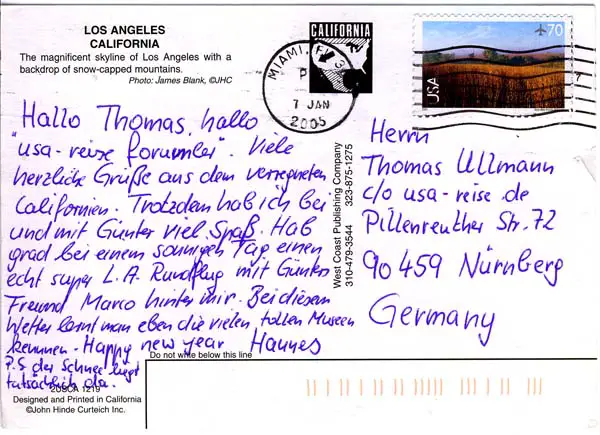 LOS ANGELES
CALIFORNIA
The magnificent skyline of Los Angeles with a
backdrop of snow-capped mountains.
Photo: James Blank, ©JHC
CALIFORNIA
MIAMI, FL
P
7 JAN
2005
70
USA
Hallo Thomas, hallo
"usa-reise forumler". Viele
herzliche Grüße aus dem verregneten
Californien. Trotzdem hab ich bei
und mit Günter viel Spaß. Hab
grad bei einem sonnigen Tag einen
echt super L.A. Rundflug mit Günters
Freund Marco hinter mir. Bei diesem
Wetter lernt man eben die vielen tollen Museen
kennen. Happy new year Hannes
P.S der Schnee liegt
tatsächlich da.
West Coast Publishing Company
310-479-3544 323-875-1275
Herrn
Thomas Ullmann
c/o usa-reise.de
Pillenreuther Str. 72
90 459 Nürnberg
Germany
Do not write below this line
2USCA 1219
Designed and Printed in California
©John Hinde Curteich Inc.